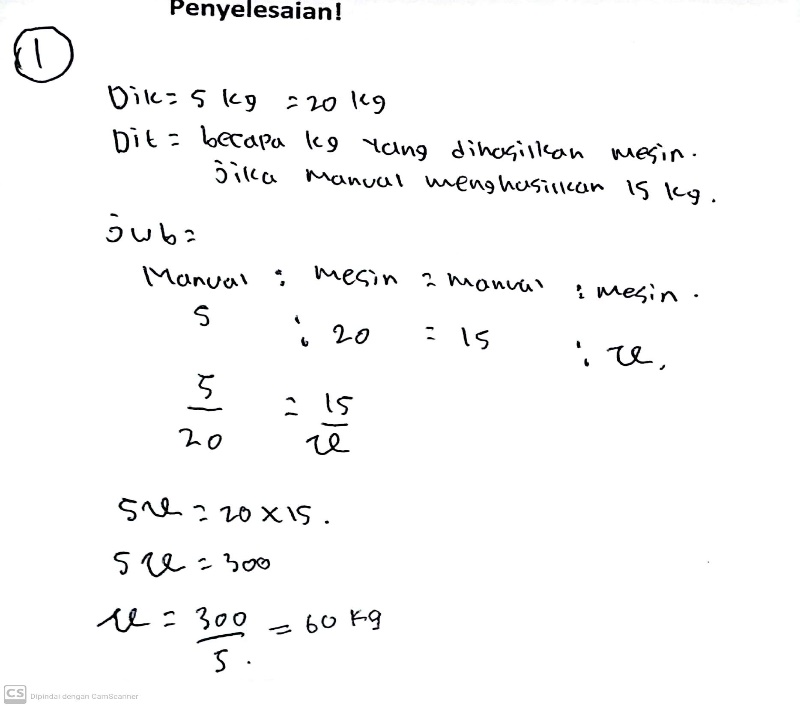 Penyelesaian!
1
Dik = 5 kg = 20 kg
Dit = berapa kg yang dihasilkan mesin.
jika manual menghasilkan 15 kg.
jwb =
Manual : mesin = manual : mesin.
5 : 20 = 15 : x,
5/20 = 15/x
5x = 20 x 15.
5x = 300
x = 300/5. = 60 kg
CS Dipindai dengan CamScanner